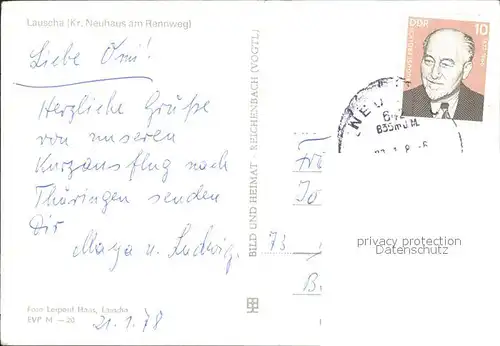 Lauscha (Kr. Neuhaus am Rennweg)
Liebe Omi!
Herzliche Grüße
von unserem
Kurzausflug nach
Thüringen senden
Dir
Maya u. Ludwig.
Foto: Leopold Haas, Lauscha
EVP M —.20
21.1.78
BILD UND HEIMAT REICHENBACH (VOGTL)
DDR
10
NEU
835m ü.M.
73
privacy protection
Datenschutz